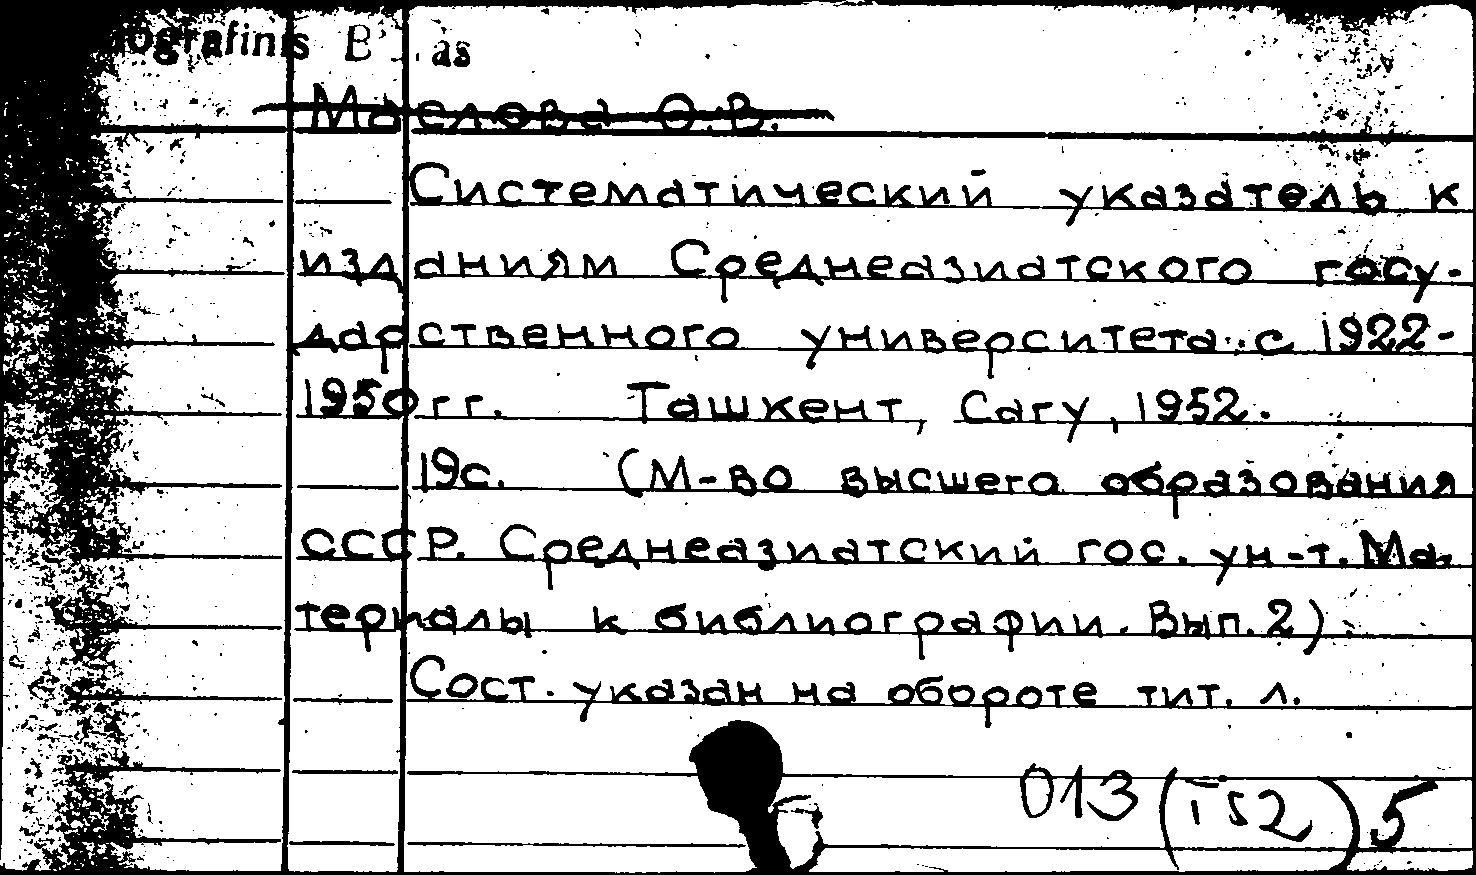 Маслова О.В.
Систематический указатель к
изданиям Среднеазиатского госу-
дарственного университета с 1922-
1950 гг. Ташкент, Сагу, 1952.
19с. (М-во высшего образования
СССР. Среднеазиатский гос. ун-т. Ма-
териалы к библиографии. Вып. 2).
Сост. указан на обороте тит. л.
013 (152) 5